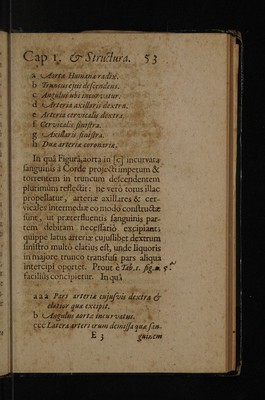 Cap 1. & Structura. 53
a Aortæ Humanæ radix.
b Truncus ejus descendens.
c Angulus ubi incurvatur.
d Arteria axillaris dextra.
e Arteria cervicalis dextra.
f Cervicalis sinistra.
g Axillaris sinistra.
h Duæ arteriæ coronariæ.
In quâ Figurâ, aorta in [c] incurvata
sanguinis à Corde projecti impetum &
torrentem in truncum descendentem
plurimùm reflectit: ne verò totus illac
propellatur, arteriæ axillares & cer-
vicales intermediæ eo modo constructæ
sunt, ut præterfluentis sanguinis par-
tem debitam necessariò excipiant;
quippe latus arteriæ cujuslibet dextrum
sinistro multò elatius est, unde liquoris
in majore trunco transfusi pars aliqua
intercipi oportet. Prout è Tab. 1. fig.
faciliùs concipietur. In quâ
a a a Pars arteriæ cujusvis dextra &
elatior quæ excipit.
b Angulus aortæ incurvatus.
ccc Latera arteriarum demissa quæ san-
E 3 guinem